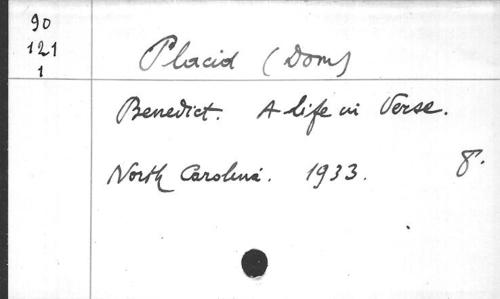 90
121
1
Placid (Dom)
Benedict. A life in Verse.
North Carolina. 1933. 8°.